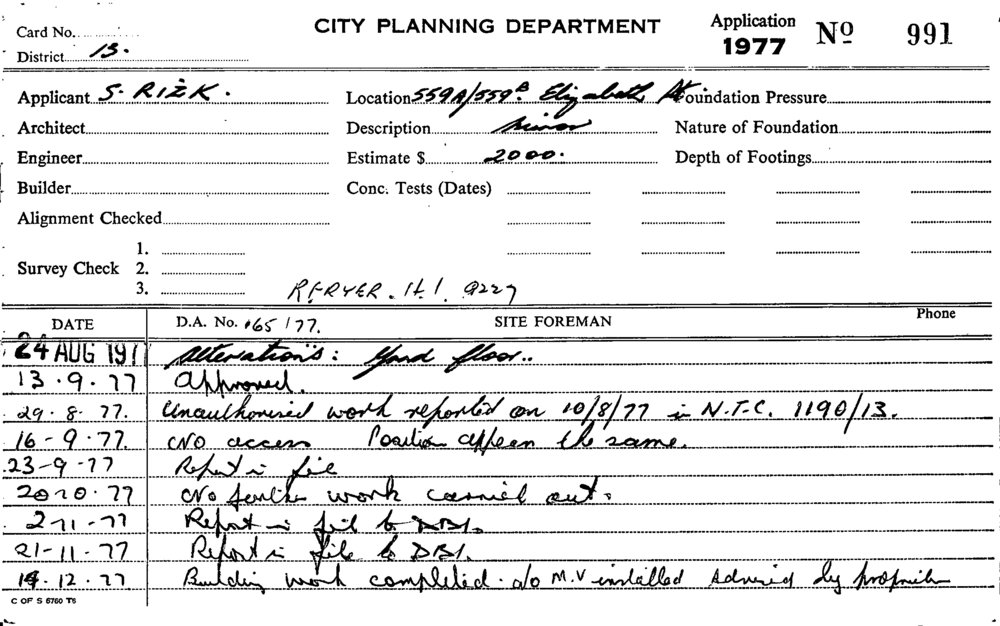 Card No.
CITY PLANNING DEPARTMENT
Application 1977 Nº 991
District 13.
Applicant S. RIZK. Location 559A/559B Elizabeth St Foundation Pressure
Architect Description Minor Nature of Foundation
Engineer Estimate $ 2000. Depth of Footings
Builder Conc. Tests (Dates)
Alignment Checked
1.
Survey Check 2.
3.
R. FRYER. H.I. 9227
DATE D.A. No. 165/77. SITE FOREMAN Phone
24 AUG 197 Alterations: floor..
13.9.77 Approved.
29.8.77. Unauthorised work reported on 10/8/77 in N.T.C. 1190/13.
16-9-77. No access Position appears the same.
23-9-77 Report in file
20 10.77 No further work carried out.
2-11-77 Report in file to DBI.
21-11-77 Report in file to DBI.
14.12.77 Building work completed. a/o M.V installed advised by
C OF S 6760 T6